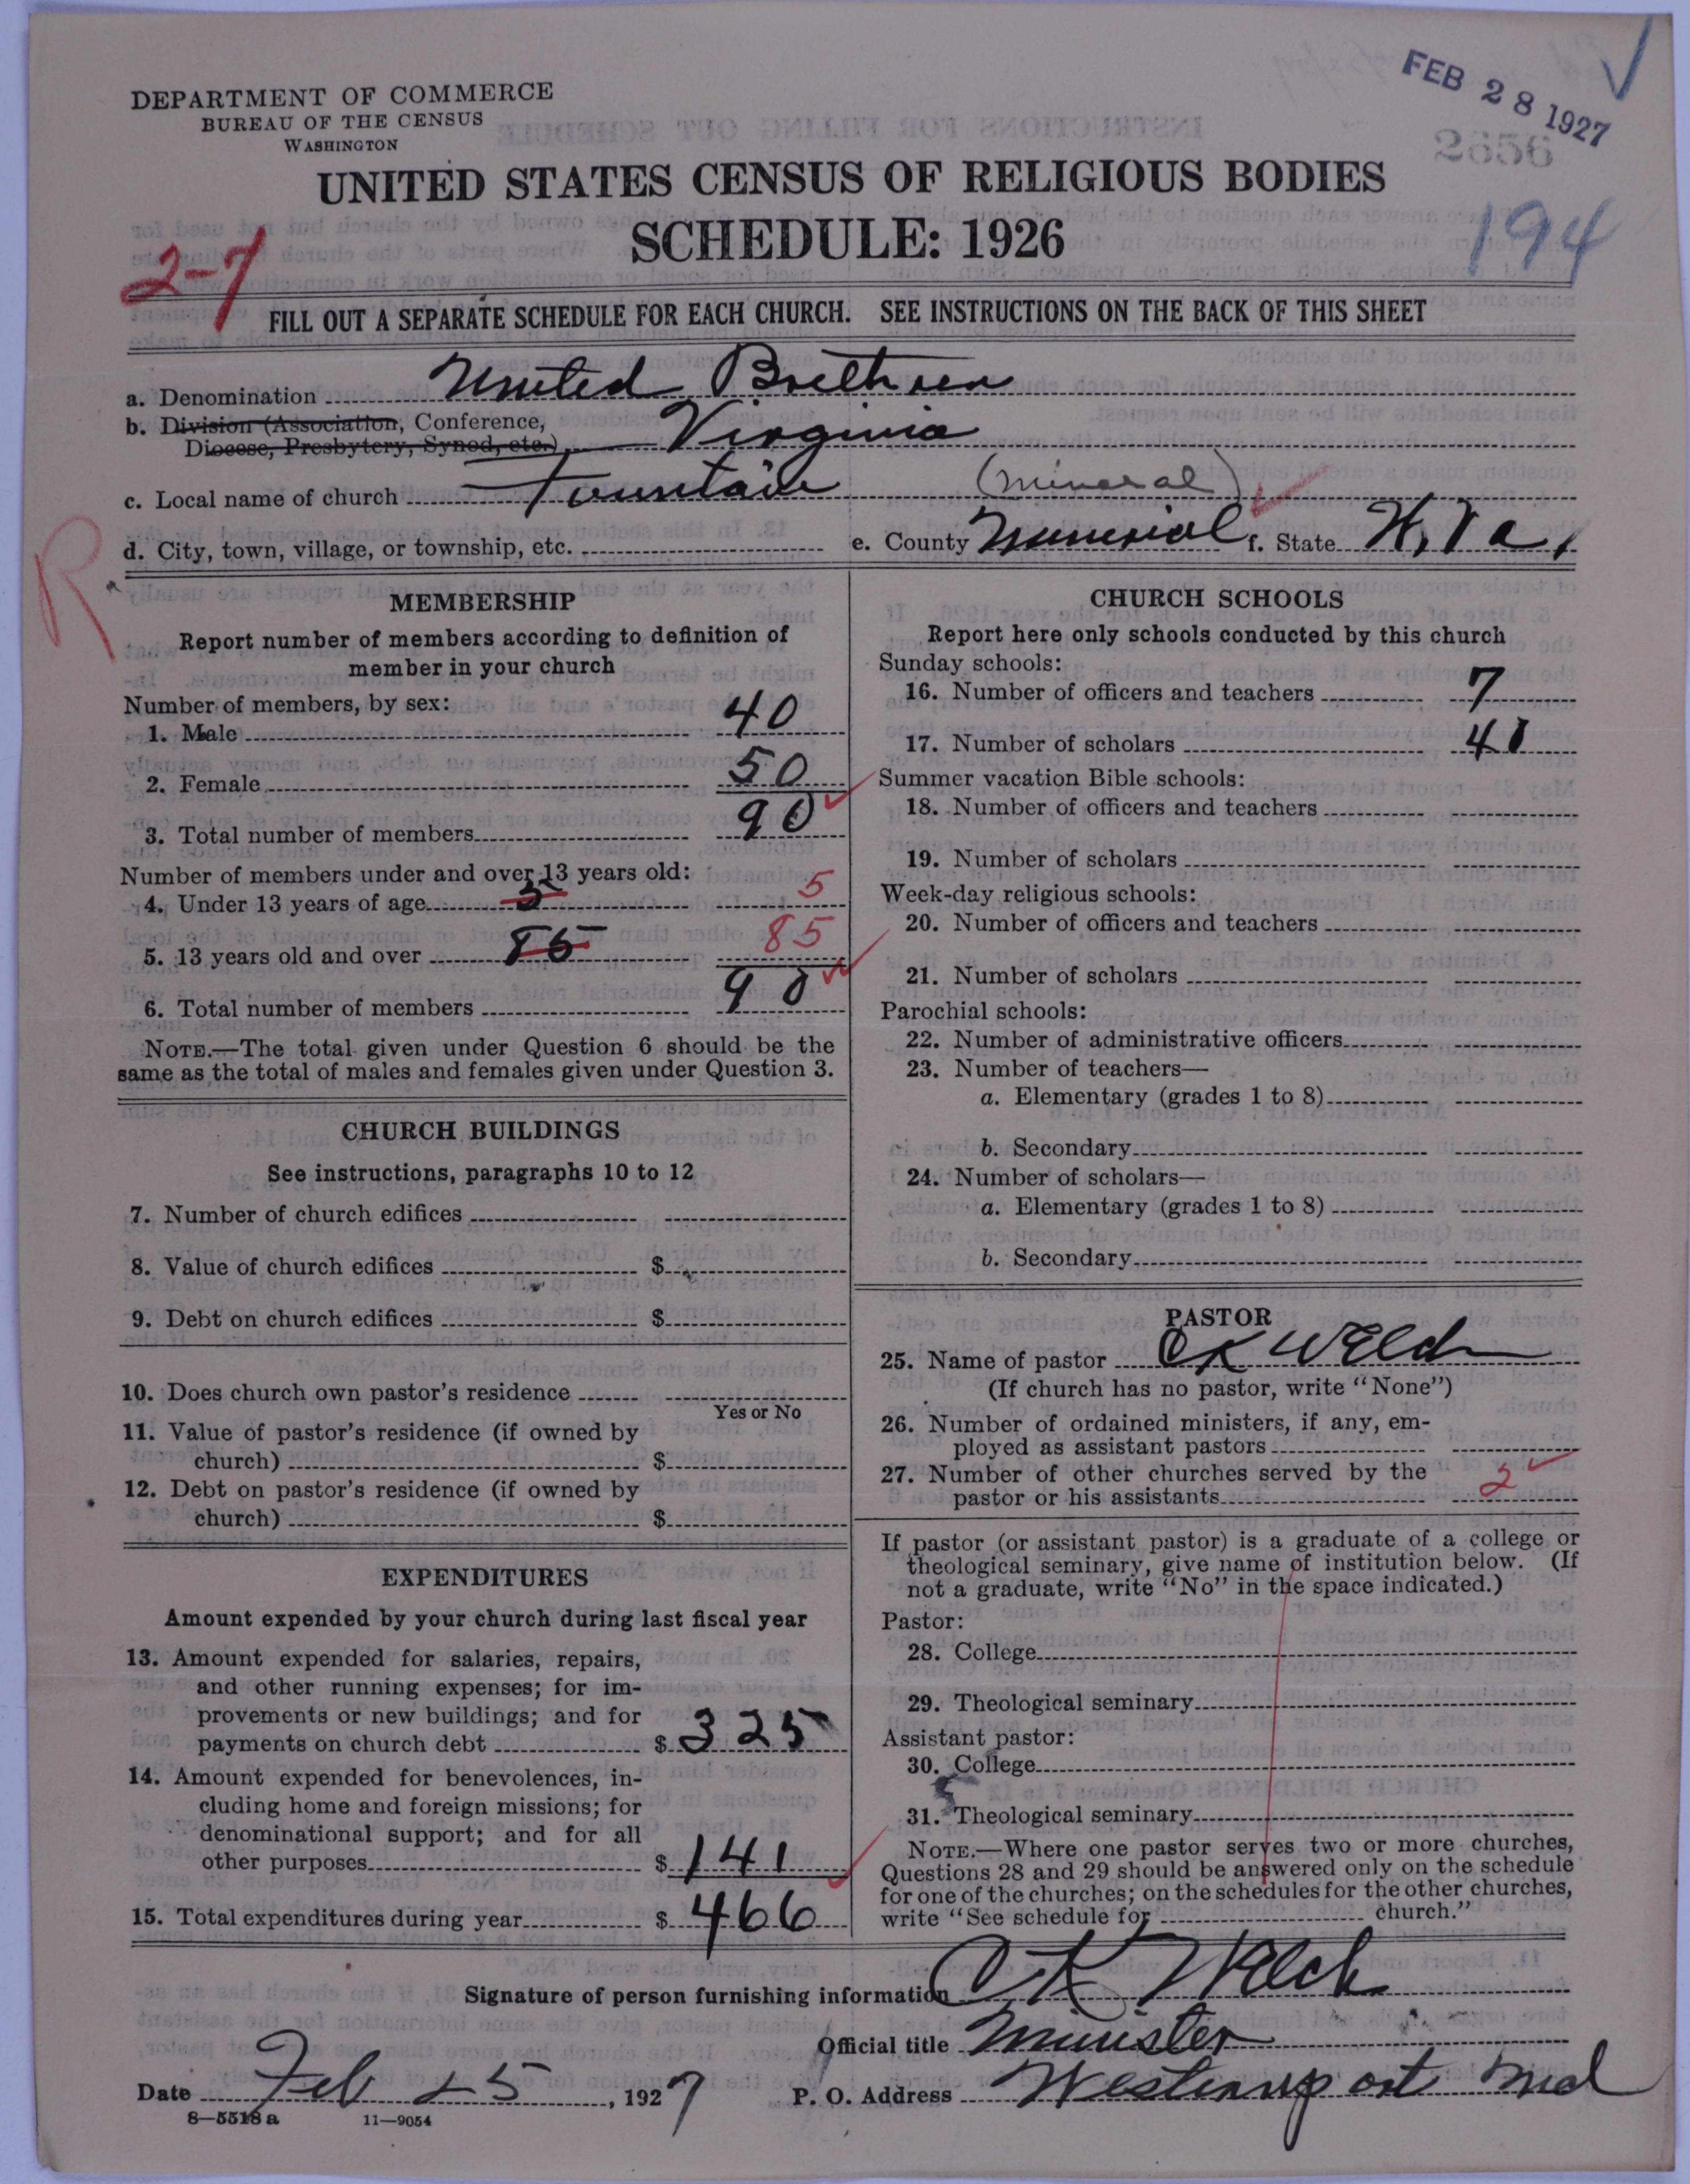 FEB 28 1927
2656
DEPARTMENT OF COMMERCE
BUREAU OF THE CENSUS
WASHINGTON
UNITED STATES CENSUS OF RELIGIOUS BODIES
SCHEDULE: 1926
194
2-7
FILL OUT A SEPARATE SCHEDULE FOR EACH CHURCH. SEE INSTRUCTIONS ON THE BACK OF THIS SHEET
a. Denomination United Brethren
b. Division (Association, Conference,
Diocese, Presbytery, Synod, etc.) Virginia
c. Local name of church Fountain (mineral)
d. City, town, village, or township, etc. e. County Munerial f. State W. Va.
R
MEMBERSHIP
Report number of members according to definition of
member in your church
Number of members, by sex:
1. Male 40
2. Female 50
3. Total number of members 90
Number of members under and over 13 years old:
4. Under 13 years of age 5 5
5. 13 years old and over 85 85
6. Total number of members 90
NOTE.—The total given under Question 6 should be the
same as the total of males and females given under Question 3.
CHURCH BUILDINGS
See instructions, paragraphs 10 to 12
7. Number of church edifices
8. Value of church edifices $
9. Debt on church edifices $
10. Does church own pastor's residence
Yes or No
11. Value of pastor's residence (if owned by
church) $
12. Debt on pastor's residence (if owned by
church) $
EXPENDITURES
Amount expended by your church during last fiscal year
13. Amount expended for salaries, repairs,
and other running expenses; for im-
provements or new buildings; and for
payments on church debt $ 325
14. Amount expended for benevolences, in-
cluding home and foreign missions; for
denominational support; and for all
other purposes $ 141
15. Total expenditures during year $ 466
CHURCH SCHOOLS
Report here only schools conducted by this church
Sunday schools:
16. Number of officers and teachers 7
17. Number of scholars 41
Summer vacation Bible schools:
18. Number of officers and teachers
19. Number of scholars
Week-day religious schools:
20. Number of officers and teachers
21. Number of scholars
Parochial schools:
22. Number of administrative officers
23. Number of teachers—
a. Elementary (grades 1 to 8)
b. Secondary
24. Number of scholars—
a. Elementary (grades 1 to 8)
b. Secondary
PASTOR
25. Name of pastor C K Welch
(If church has no pastor, write "None")
26. Number of ordained ministers, if any, em-
ployed as assistant pastors
27. Number of other churches served by the
pastor or his assistants 2
If pastor (or assistant pastor) is a graduate of a college or
theological seminary, give name of institution below. (If
not a graduate, write "No" in the space indicated.)
Pastor:
28. College
29. Theological seminary
Assistant pastor:
30. College
31. Theological seminary
NOTE.—Where one pastor serves two or more churches,
Questions 28 and 29 should be answered only on the schedule
for one of the churches; on the schedules for the other churches,
write "See schedule for church."
Signature of person furnishing information C K Welch
Official title Minister
Date Feb 25, 1927 P. O. Address Westernport Md
8—5518 a 11—9054